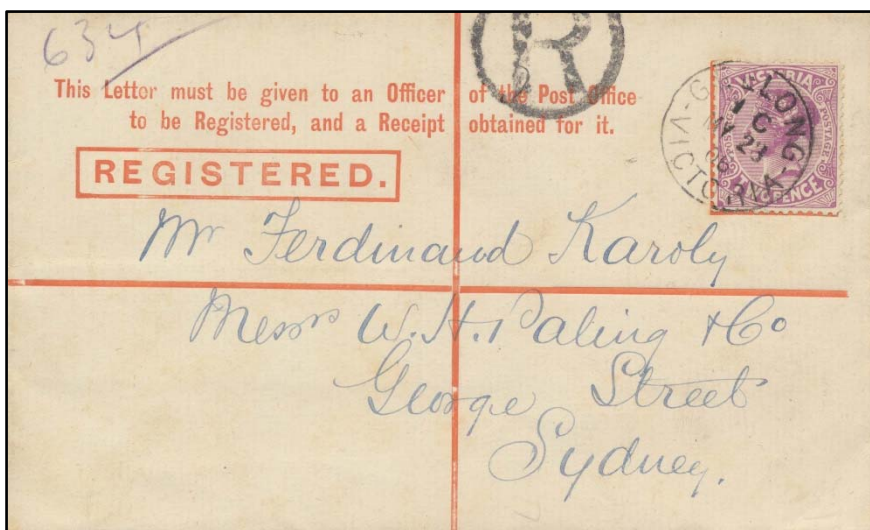 634
R
This Letter must be given to an Officer of the Post Office
to be Registered, and a Receipt obtained for it.
REGISTERED.
VICTORIA
POSTAGE
TWO PENCE
GEELONG
C
MY 28
06
VICTORIA
Mr Ferdinand Karoly
Messrs W. H. Paling & Co
George Street
Sydney.